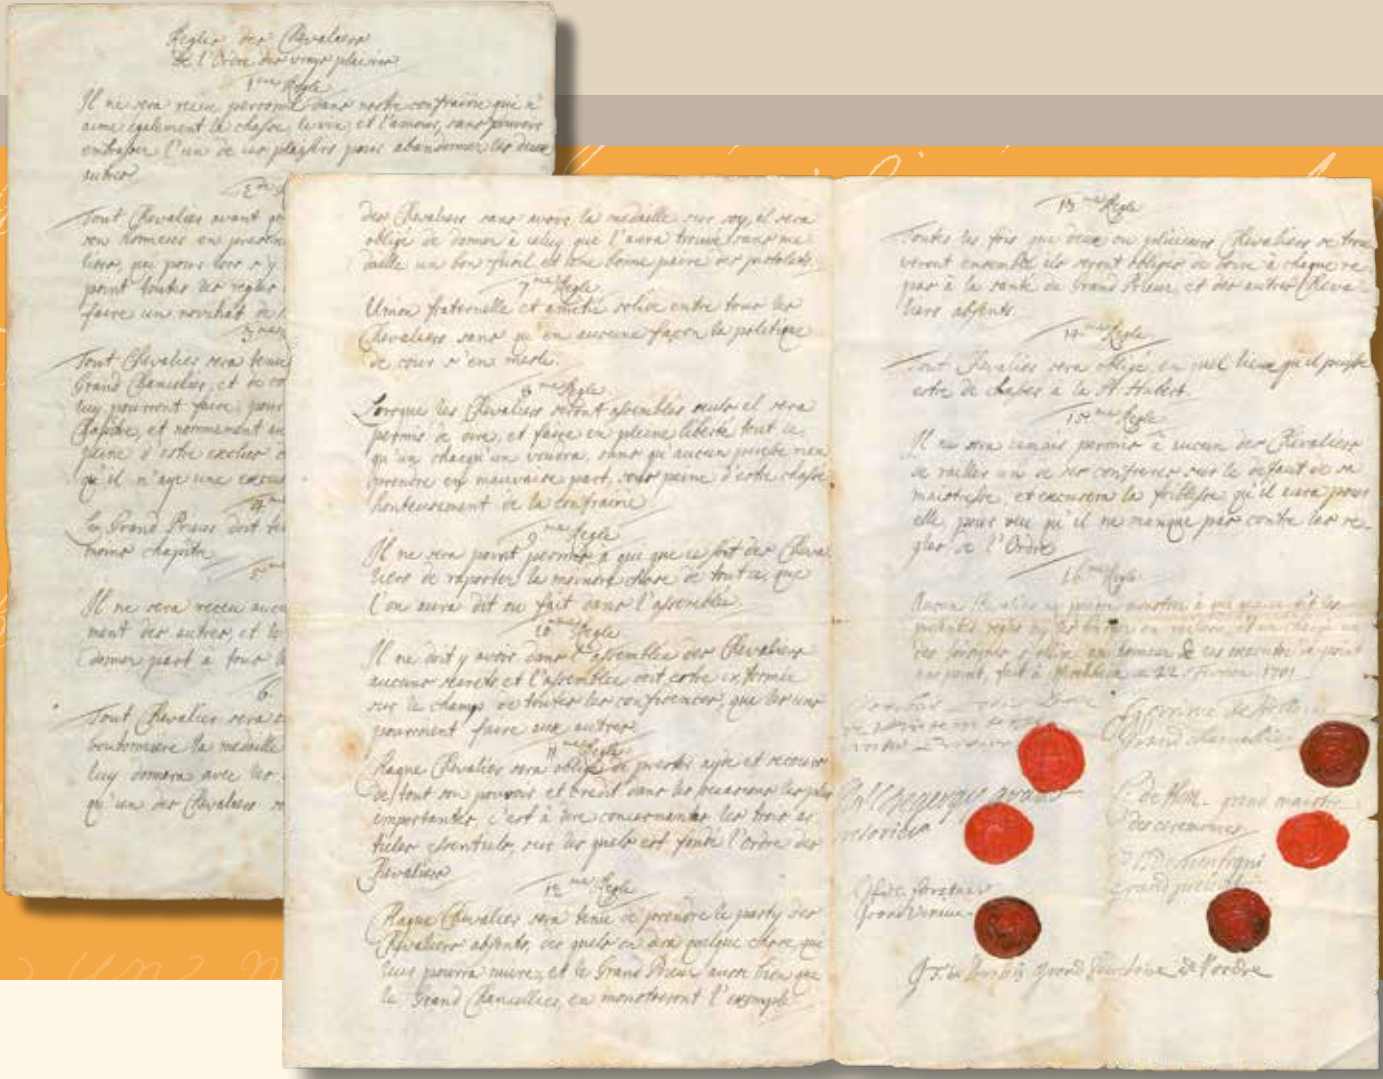 Regles des Chevaliers
de l'Ordre des vrays plaisirs
1me Regle
Il ne sera receu personne dans nostre confrairie qui n'
aime egalement la chasse, le vin, et l'amour, sans pouvoir
embrasser l'un de ces plaisirs pour abandonner les deux
autres
2me
Tout Chevalier avant
son homeur en presen
liers, qui pour lors s'y
point toutes les regles
faire un novichat de
3me
Tout Chevalier sera tenu
Grand Chancelier, et de
luy pourront faire, pour
Chapitre, et nommement au
peine d'estre exclus
qu'il n'aye une excuse
4me
Le Grand Prieur doit te
moins chapitre
5me
Il ne sera receu aucu
ment des autres, et le
donner part à tous le
6
Tout Chevalier sera
boutonniere la medaille
luy donnera avec les
qu'un des Chevaliers
des Chevaliers sans avoir la medaille sur soy, il sera
obligé de donner à celuy que l'aura trouvé sans me
daille un bon fusil et une bonne paire de pistolets.
7me Regle
Union fraternelle et amitié solide entre tous les
Chevaliers sans qu'en aucune façon la politique
de cour s'en mesle.
8me Regle
Lorsque les Chevaliers seront assembles seuls il sera
permis de dire, et faire en pleine liberté tout ce
qu'un chacqu'un voudra, sans qu'aucun puisse rien
prendre en mauvaise part sous peine d'estre chassé
honteusement de la confrairie
9me Regle
Il ne sera point permis a qui que ce soit des Cheva
liers de raporter la moindre chose de tout ce, que
l'on aura dit ou fait dans l'assemblée.
10me Regle
Il ne doit y avoir dans l'assemblée des Chevaliers
aucuns secrets et l'assemblée doit estre informée
sur le champ de toutes les confidences, que les uns
pourroient faire aux autres
11me Regle
Chaque Chevalier sera obligé de prester ayde et secours
de tout son pouvoir et credit dans les occasions les plus
importantes, c'est à dire concernantes les trois ar
ticles essentiels, sur les quels est fondé l'Ordre des
Chevaliers
12me Regle
Chaque Chevalier sera tenu de prendre le party des
Chevaliers absents, des quels on dira quelque chose, que
leur pourra nuire, et le Grand Prieur aussi bien que
le Grand Chancellier, en monstreront l'exemple
13me Regle
Toutes les fois que deux ou plusieurs Chevaliers se trou
veront ensemble ils seront obligés de boire à chaque re
pas à la santé du Grand Prieur, et des autres Cheva-
liers absents
14me Regle
Tout Chevalier sera obligé, en quel lieu qu'il puisse
estre de chasser à la St Hubert
15me Regle
Il ne sera jamais permis à aucun des Chevaliers
de railler un de ses confreres sur le defaut de sa
maistresse, et excusera la foiblesse qu'il aura pour
elle, pour veu qu'il ne manque pas contre les re-
gles de l'Ordre
16me Regle
Aucun Chevalier ne pourra monstrer à qui que ce soit les
presentes regles
homeur de les executer de point
en point, fait à le 22 Fevrier 1701
Grand chancellier
grand
grand maistre
des ceremonies
Grand prieur
Grand Veneur
Grand de l'ordre